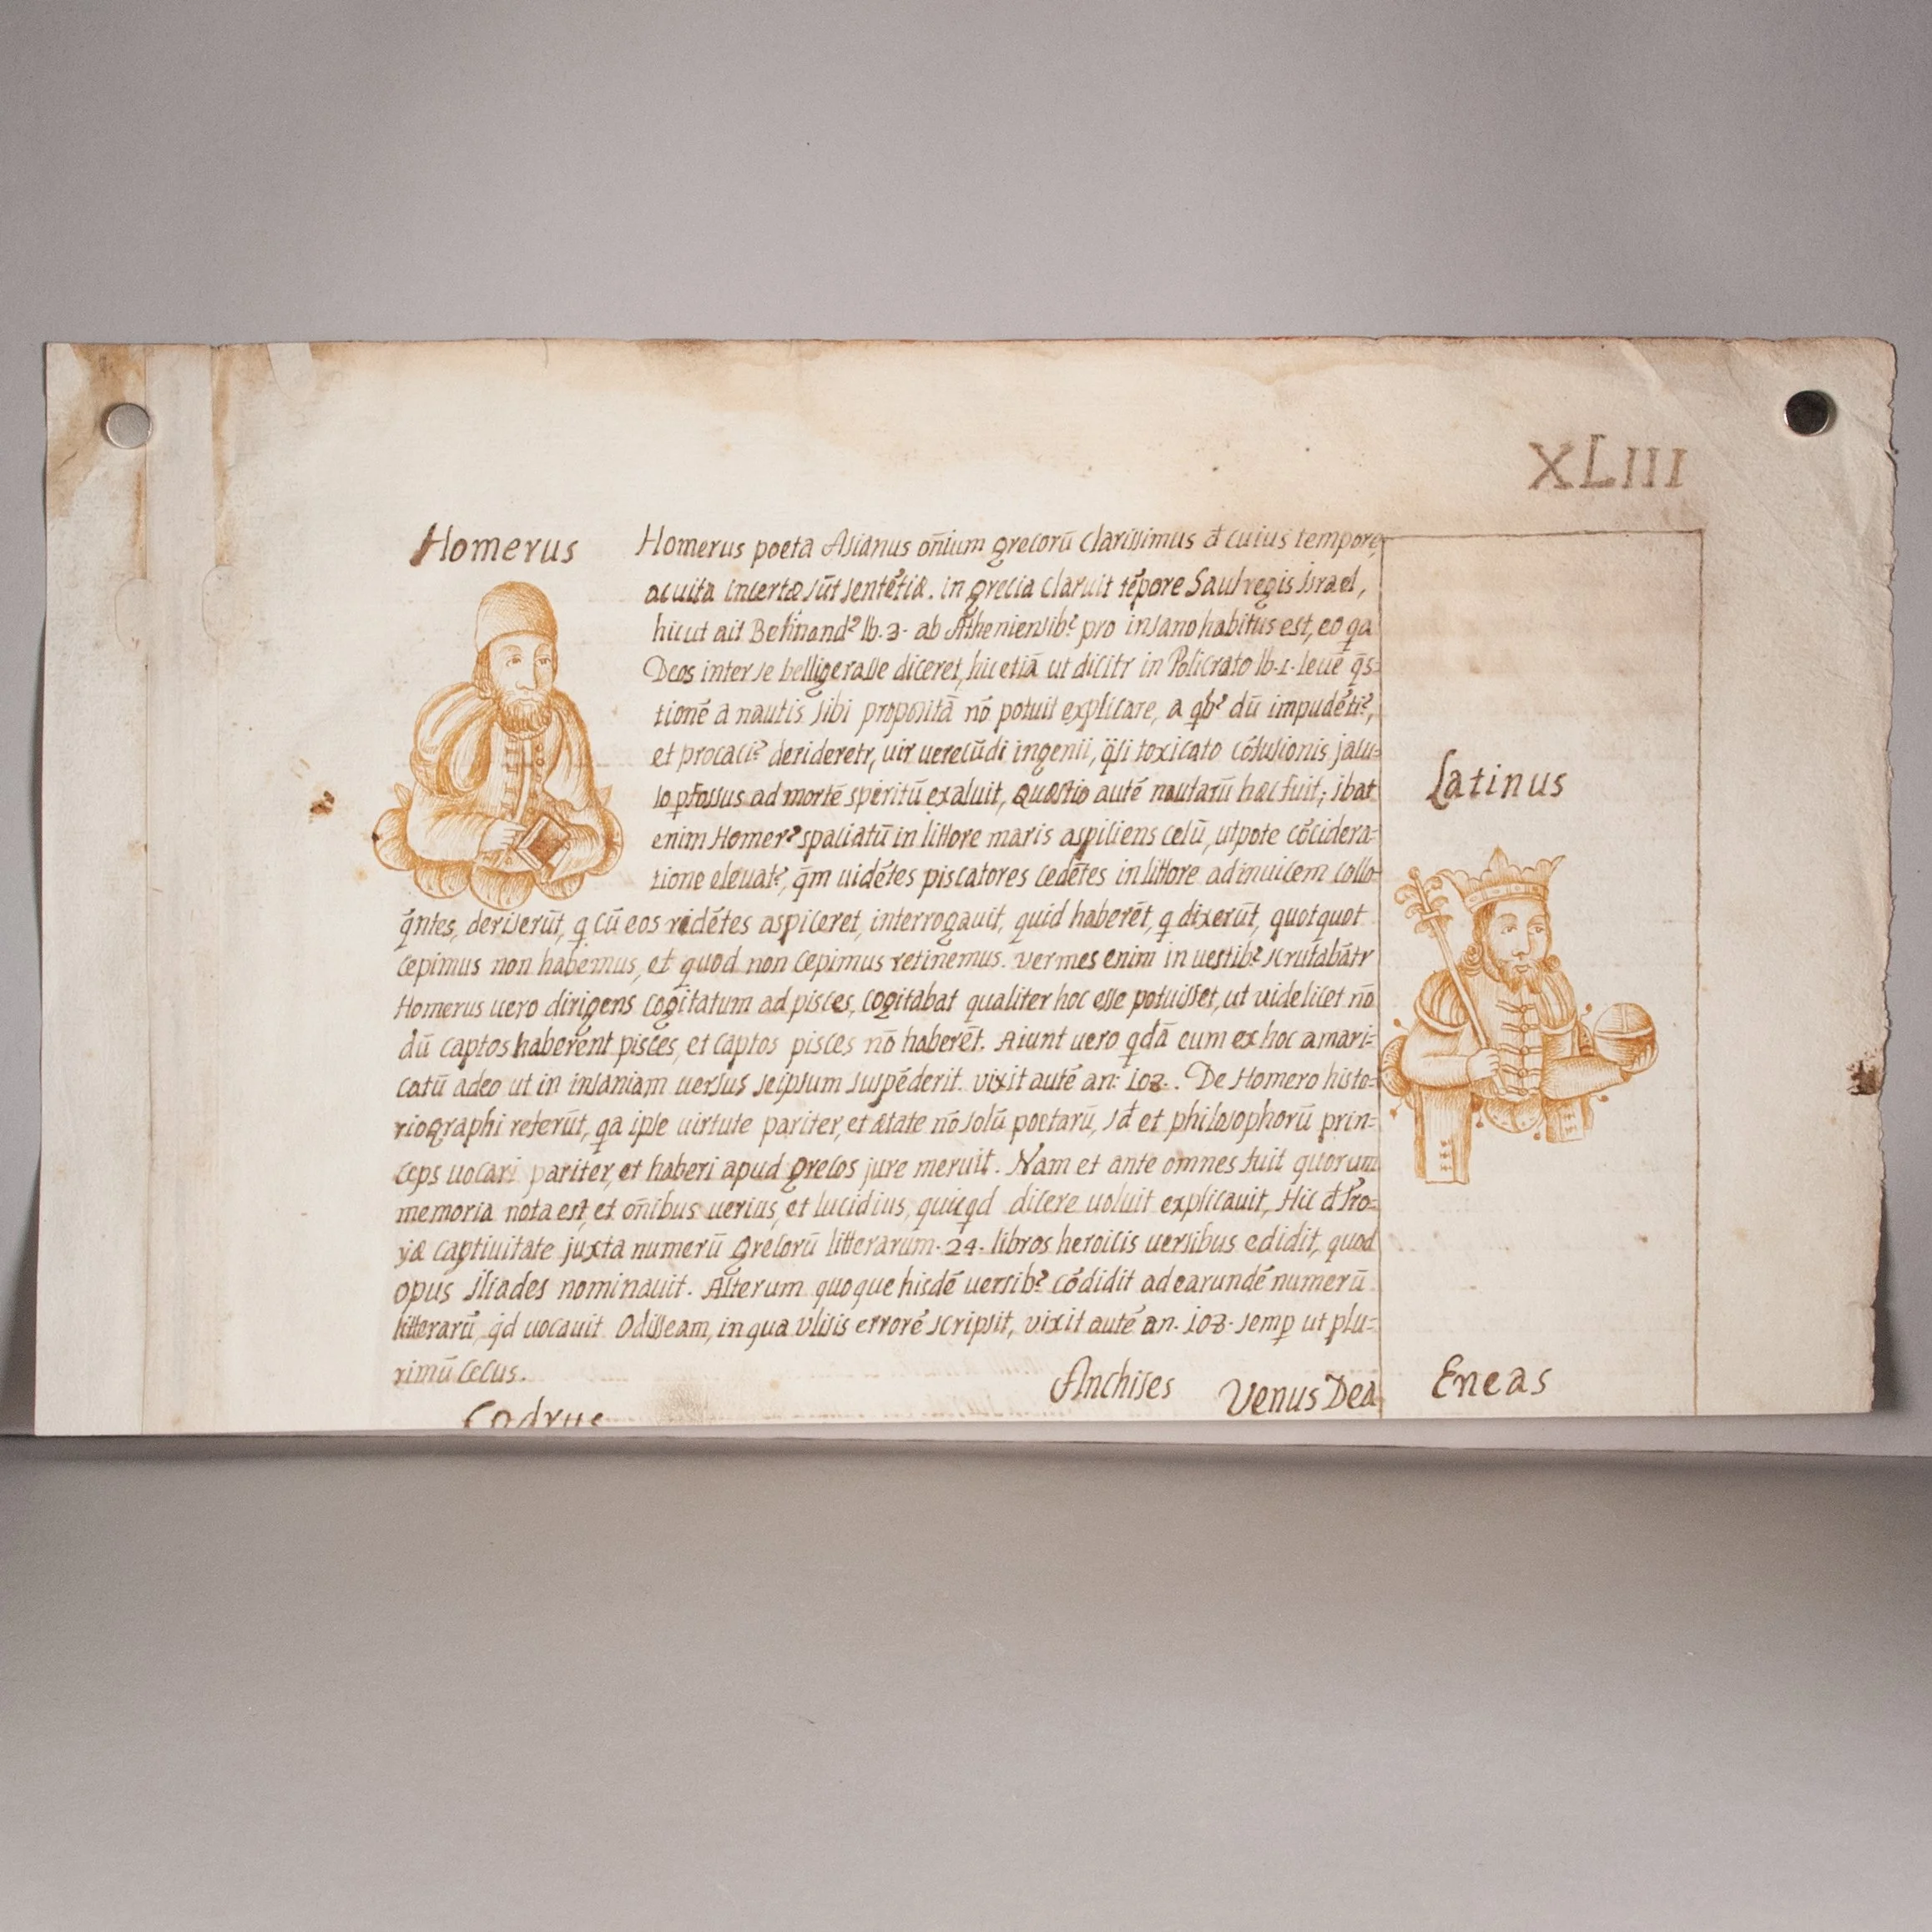 XLIII
Homerus
Homerus poeta Asianus oñium grecorū clarissimus đ cuius tempore,
ac uita incertæ sūt sentētiæ. in grecia claruit tēpore Saul regis israel,
hic ut ait Belinand? lb. 3. ab Atheniensib? pro insano habitus est, eo qa
Deos inter se belligerasse diceret, hic etiā ut dicitr in Policrato lb. 1. leuē q̄s=
tionē a nautis sibi propositā nō potuit explicare, a qb? dū impudēti?,
et procaci? derideretr, uir uerecūdi ingenii, q̄si toxicato cōfusionis jacu=
lo pfossus ad mortē spiritū exaluit, Quæstio autē nautarū hæc fuit; ibat
enim Homer? spaciatū in littore maris aspiciens celū, utpote cōcidera=
tione eleuat?, q̄m uidētes piscatores cedētes in littore adinuicem collo=
q̄ntes, deriserūt, q cū eos ridētes aspiceret, interrogauit, quid haberēt, q dixerūt, quotquot
cepimus non habemus, et quod non cepimus retinemus. vermes enim in uestib? scrutabātr
Homerus uero dirigens cogitatum ad pisces, cogitabat qualiter hoc esse potuisset, ut uidelicet nō
dū captos haberent pisces, et captos pisces nō haberēt. Aiunt uero qdā eum ex hoc amari=
catū adeo ut in insaniam uersus seipsum suspēderit. vixit autē an: 108. . De Homero histo=
riographi referūt, qa ipse uirtute pariter, et ætate nō solū poetarū, sđ et philosophorū prin=
ceps uocari pariter, et haberi apud grecos jure meruit. Nam et ante omnes fuit quorum
memoria nota est, et oñibus uerius, et lucidius, quicqd dicere uoluit explicauit, Hic đ Tro=
yæ captiuitate juxta numerū grecorū litterarum. 24. libros heroicis uersibus edidit, quod
opus iliades nominauit. Alterum quoque hisdē uersib? cōdidit ad earundē numerū
litterarū, qđ uocauit Odisseam, in qua vlisis errorē scripsit, vixit autē an. 108. semp ut plu=
rimū cecus.
Latinus
Anchises Venus Dea Eneas
Codrus